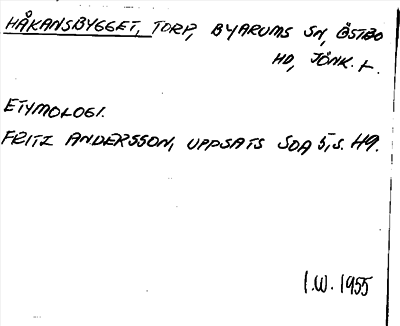 HÅKANSBYGGET, TORP, BYARUMS SN, ÖSTBO
HD, JÖNK. L.
ETYMOLOGI.
FRITZ ANDERSSON, UPPSATS SOA 5, S. 49.
I.W. 1955